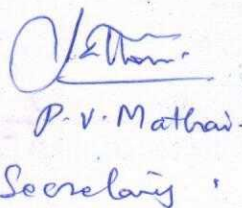 P.V. Mathai.
Secretary.